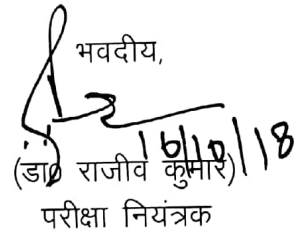 भवदीय,
16/10/18
(डा० राजीव कुमार)
परीक्षा नियंत्रक